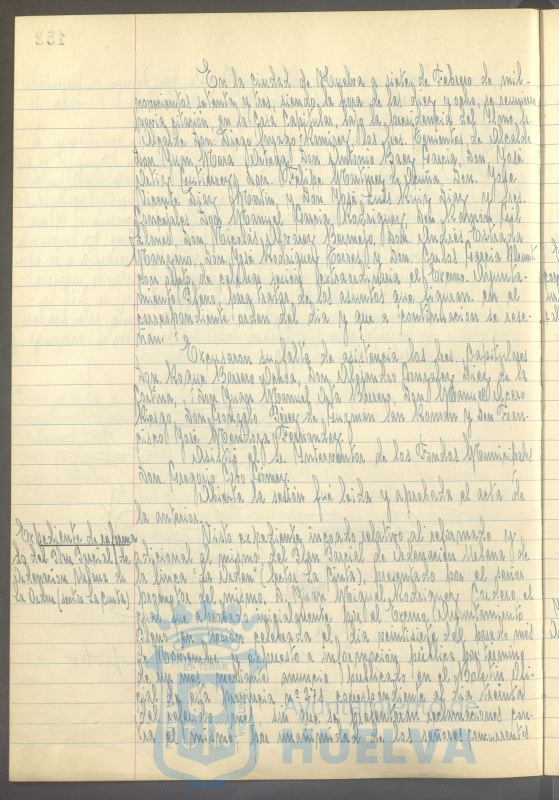 En la ciudad de Huelva a siete de Febrero de mil
novecientos setenta y tres, siendo la hora de las diez y ocho, se reunieron
previa citación, en la Casa Capitular, bajo la presidencia del Ilmo. Sr.
Alcalde Don Diego Ramírez los Sres. Tenientes de Alcalde
Don Juan Mora Don Antonio Baez García, Don José
Ortiz Gutierrez, Don Felipe Martinez Acuña, Don José
Vicente Diaz Martin, y Don José Luis Ruiz Diaz y Sres.
Concejales Don Manuel García Rodriguez, Don Ramón Gil
Don Nicolás Alvarez Bermejo, Don Andrés Estrada
Manzano, Don José Rodriguez Torres y Don Carlos García
con objeto de celebrar sesión extraordinaria el Excmo. Ayunta-
miento Pleno, para tratar de los asuntos que figuran en el
correspondiente orden del dia y que a continuación se rese-
ñan.
Excusaron su falta de asistencia los Sres. Capitulares
Don Roque Barrero Ochoa, Don Alejandro Gonzalez Diez de la
Cortina, Don Juan Manuel Barrero, Don Manuel
Riesgo, Don Gonzalo Pérez de Guzmán San Román y Don Fran-
cisco José Mendoza Fernandez.
Asistió el Sr. Interventor de los Fondos Municipales
Don Gregorio Gomez.
Abierta la sesión fué leida y aprobada el acta de
la anterior.
Expediente de reforma
del Plan Parcial de
Ordenación Urbana de
La Orden (sector La Cinta)
Visto expediente incoado relativo al reformado y
adicional al mismo del Plan Parcial de Ordenación Urbana de
la finca "La Orden" (sector La Cinta), presentado por el señor
promotor del mismo, D. Juan Miguel Rodriguez Cordero, el
cual se aprobó inicialmente por el Excmo. Ayuntamiento
Pleno en sesión celebrada el dia veintisiete del pasado mes
de Noviembre y expuesto a información pública por término
de un mes mediante anuncio publicado en el Boletín Ofi-
cial de esta provincia nº 271 correspondiente al dia treinta
del referido mes, sin que se presentaran reclamaciones con-
tra el mismo, por unanimidad de los señores concurrentes
Ayuntamiento de
HUELVA